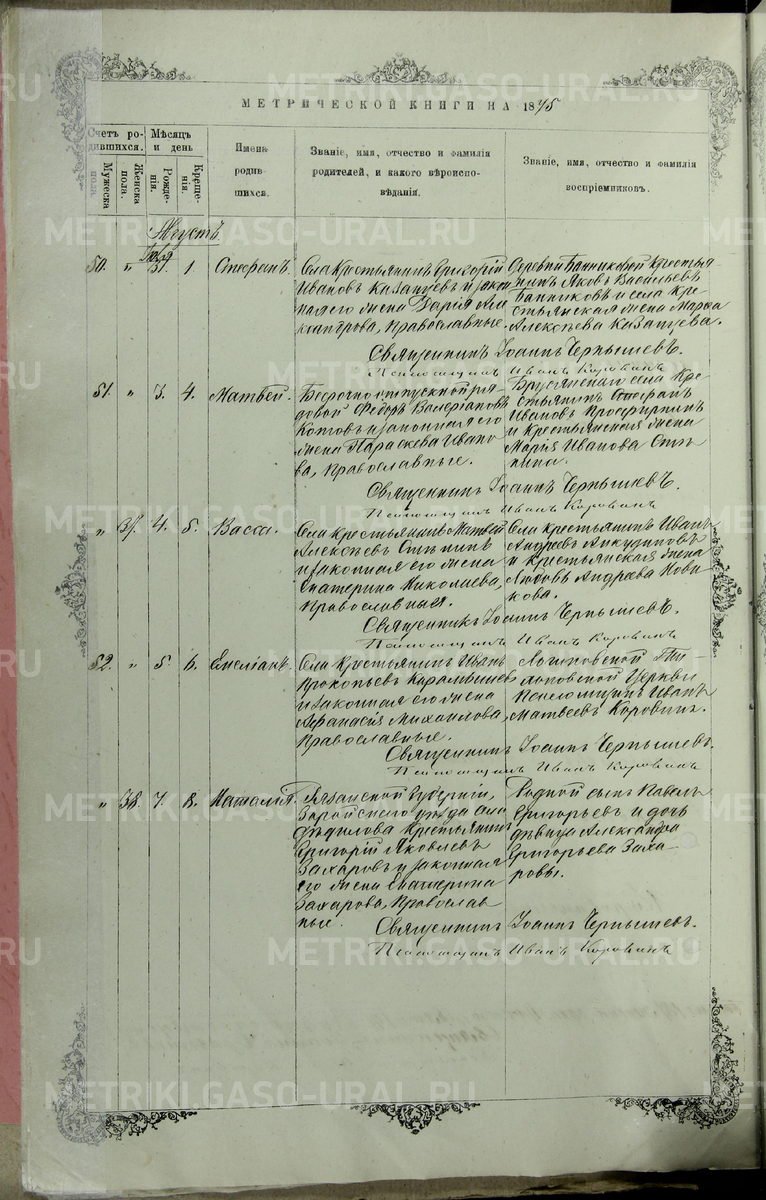 МЕТРИЧЕСКОЙ КНИГИ НА 1875
Счетъ ро-
дившихся.
Мужеска
пола.
Женска
пола.
Мѣсяцъ
и день
Рожде-
нія.
Креще-
нія.
Имена
родив-
шихся.
Званіе, имя, отчество и фамилія
родителей, и какого вѣроиспо-
вѣданія.
Званіе, имя, отчество и фамилія
воспріемниковъ.
Августъ.
Іюля
50. " 31. 1 Стефанъ.
Села Крестьянинъ Григорій
Ивановъ Казанцевъ и закон
ная его жена Дарія
православные.
Деревни Банниковой Крестья
нинъ Яковъ Васильевъ
Банниковъ и села Кре
стьянская жена Марѳа
Алексѣева Казанцева.
Священникъ Іоаннъ Чернышевъ.
Псаломщикъ Иванъ Коровинъ
51. " 3. 4. Матвей.
Безсрочно отпускной ря
довой Федоръ Валеріановъ
Котовъ и законная его
жена Параскева Ивано
ва, православные.
Бруснянскаго села Кре
стьянинъ Стефанъ
Ивановъ Просфирнинъ
и Крестьянская жена
Марія Иванова Стя
пина.
Священникъ Іоаннъ Чернышевъ.
Псаломщикъ Иванъ Коровинъ
" 37. 4. 5. Васса.
Села крестьянинъ Матвей
Алексѣевъ
и законная его жена
Екатерина Николаева,
православныя.
Села крестьянинъ Иванъ
Андреевъ Анкудиновъ
и крестьянская жена
Любовь Андреева Нови
кова.
Священникъ Іоаннъ Чернышевъ.
Псаломщикъ Иванъ Коровинъ
52. " 5. 6. Емеліанъ.
Села Крестьянинъ Иванъ
Прокопьевъ Карамышев
и законная его жена
Афанасія Михаилова,
православные.
Логиновской
Церкви
Псаломщикъ Иванъ
Матвеевъ Коровинъ.
Священникъ Іоаннъ Чернышевъ.
Псаломщикъ Иванъ Коровинъ
" 38. 7. 8. Наталія.
Рязанской Губерніи,
Зарайскаго уѣзда села
Крестьянинъ
Григорій Яковлевъ
Захаровъ и законная
его жена Екатерина
Захарова, православ
ные.
Родной сынъ Павелъ
Григорьевъ и дочь
дѣвица Александра
Григорьева Заха-
ровы.
Священникъ Іоаннъ Чернышевъ.
Псаломщикъ Иванъ Коровинъ
METRIKI.GASO-URAL.RU